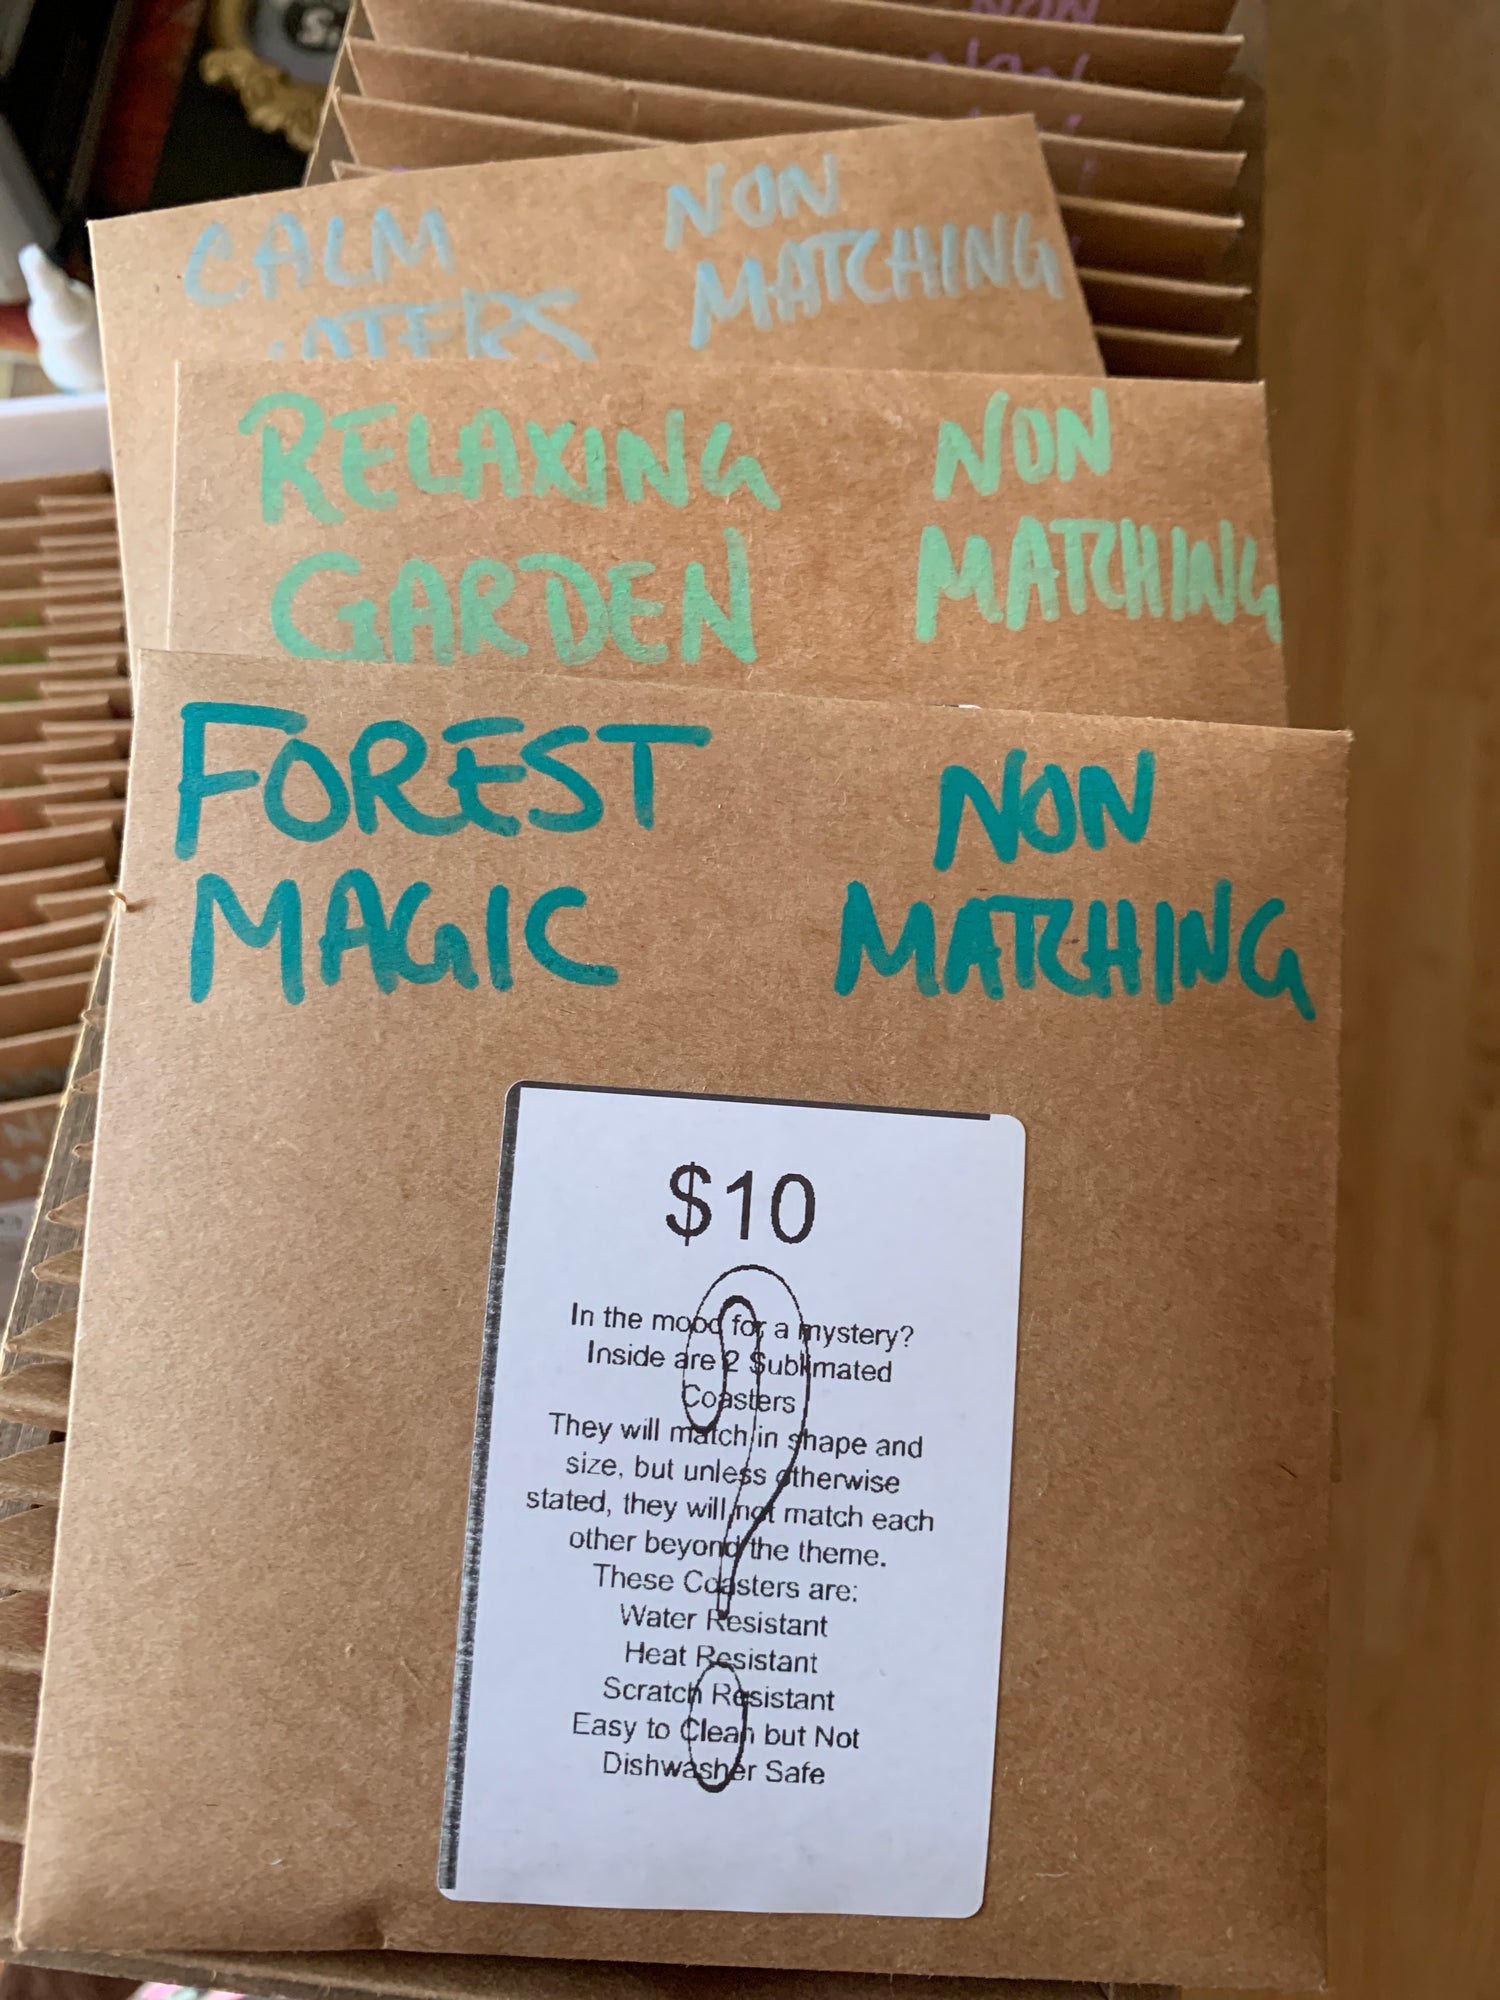 NON
CALM
NON
MATCHING
RELAXING
GARDEN
NON
MATCHING
FOREST
MAGIC
NON
MATCHING
$10
In the mood for a mystery?
Inside are 2 Sublimated
Coasters
They will match in shape and
size, but unless otherwise
stated, they will not match each
other beyond the theme.
These Coasters are:
Water Resistant
Heat Resistant
Scratch Resistant
Easy to Clean but Not
Dishwasher Safe